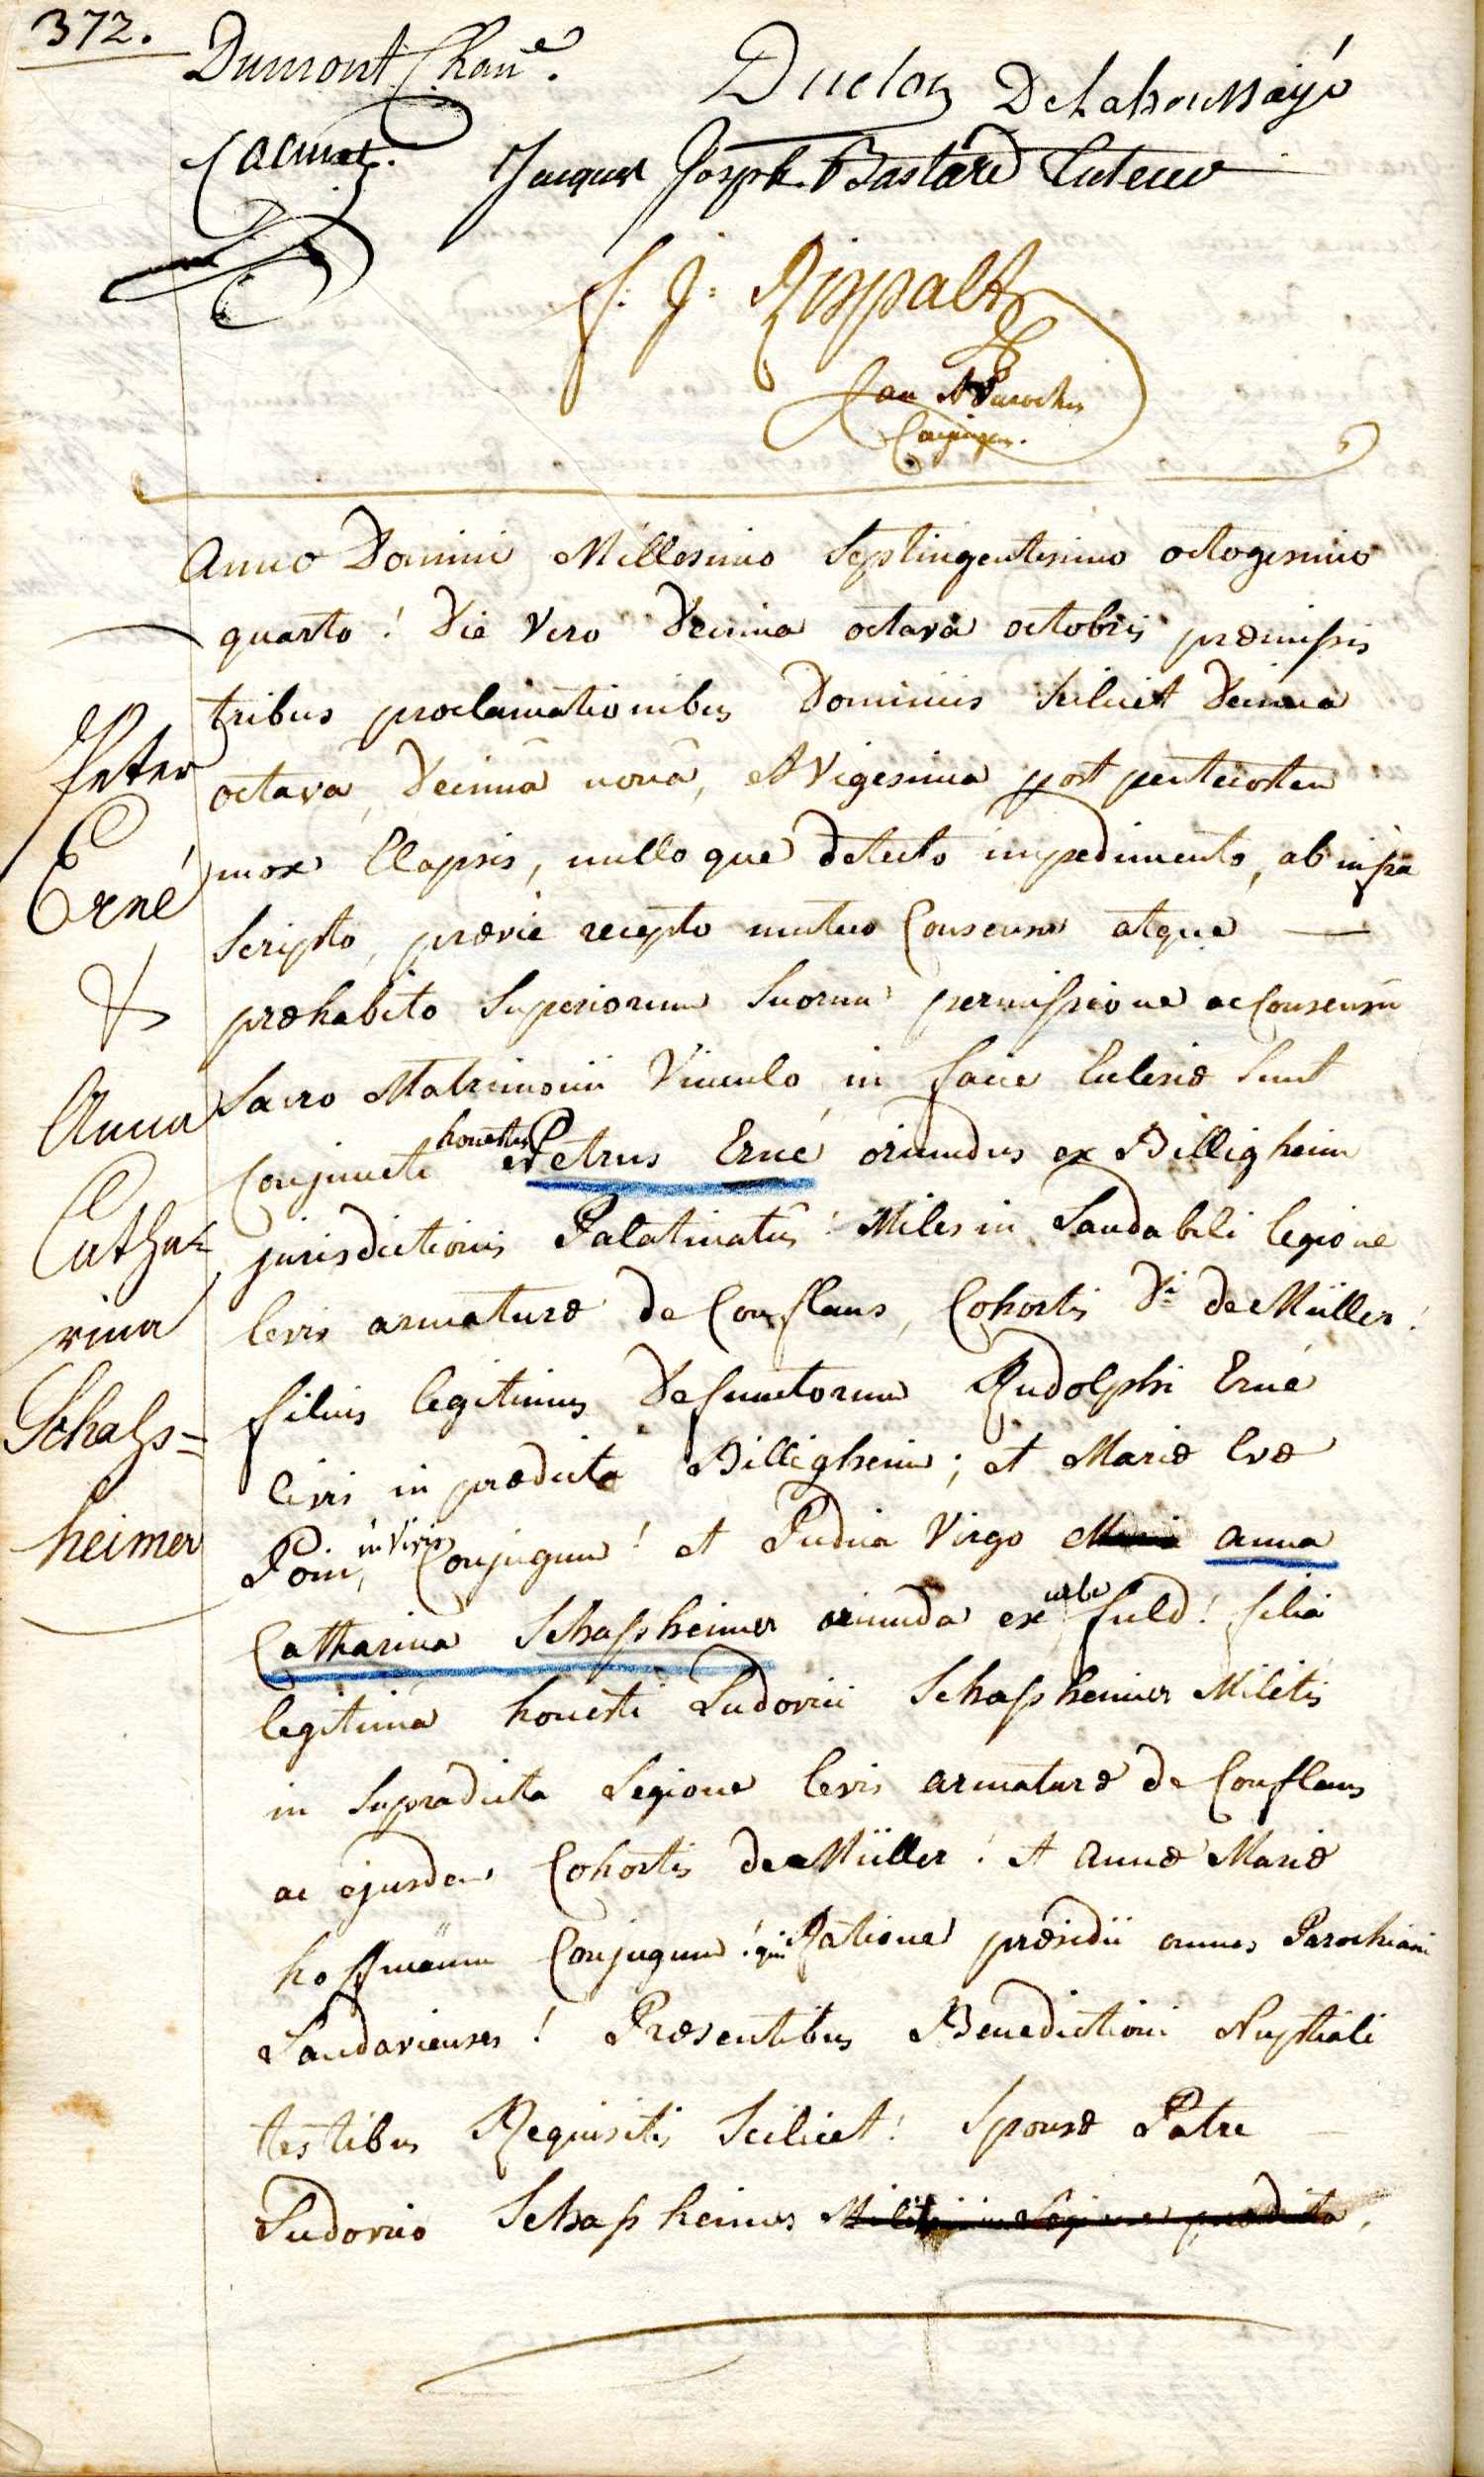 372.
Dumont Chan.e
Duclos Delahoussaye
Jacques Joseph Bastard
f: J: Rispalt
Can Parochus
Anno Domini Millesimo Septingentesimo octogesimo
quarto! Die Vero Decima octava octobris præmissis
tribus proclamationibus Dominicis scilicet Decima
octavâ, Decimâ nonâ, et Vigesima post pentecosten
mox Elapsis, nulloque detecto impedimento, ab infra
scripto, prævie recepto mutuo Consensu atque —
præhabito Superiorum Suorum permissione ac Consensu
Sacro Matrimonii Vinculo in facie Eclesiæ Sunt
Conjuncti honestus Petrus Erné oriundus ex Billigheim
jurisdictionis Palatinatûs! Miles in Laudabili legione
levis armaturæ de Conflans, Cohortis Di. de Müller!
filius legitimus Defunctorum Rudolphi Erné
Civis in prædicto Billigheim; et Mariæ Evæ
in Vivis Conjugum! et Pudica Virgo Maria anna
Catharina Schasheimer oriunda ex urbe fuld! filia
legitima honesti Ludovici Schasheimer Militis
in Supradicta Legione levis armaturæ de Conflans
ac ejusdem Cohortis de Müller! et Annæ Mariæ
hoffmännin Conjugum! qui Ratione præsidii omnes Parochiani
Landavienses! Præsentibus Benedictioni Nuptiali
testibus Requisitis Scilicet! Sponsæ Patre —
Ludovico Schasheimer Militis in Legione prædicta,
Peter
Erné
&
Anna
Catha=
rina
Schahs=
heimer